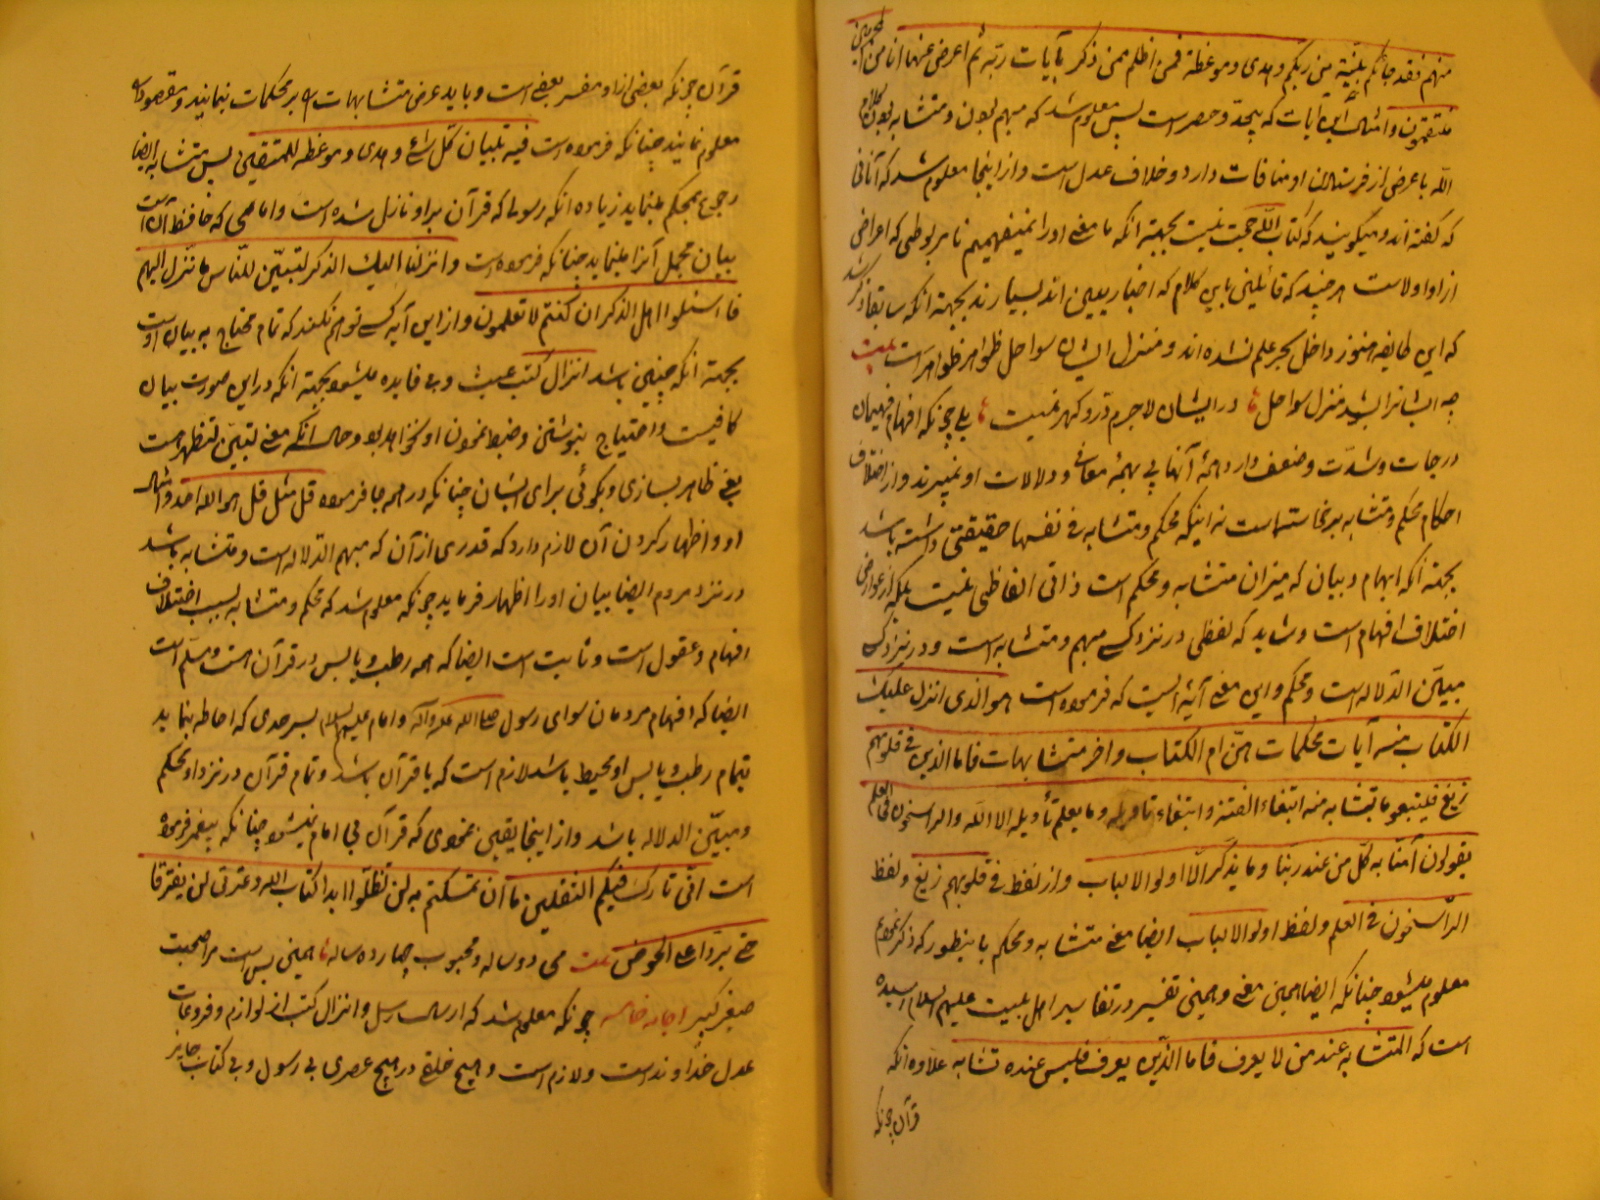 منهم فقد جائکم بینة من ربکم و هدی و موعظة فمن اظلم ممن ذکر بآیات ربه ثم اعرض عنها انا من المجرمین
منتقمون و امثال این آیات که بیحد و حصر است پس معلوم شد که مبهم بودن و متشابه بودن کلام
الله با غرض از فرستادن او منافات دارد و خلاف عدل است و از اینجا معلوم شد که آنانی
که گفته‌اند و میگویند که کتاب الله حجت نیست بجهة انکه ما معنی او را نمیفهمیم نامربوطی که اعراض
از او اولاست هرچند که قائلین باین کلام که اخباریین اند بسیارند بجهة انکه سابقا ذکر شد
که این طایفه هنوز داخل بحر علم نشده‌اند و منزل ایشان سواحل ظواهر ظواهر است بیت
چه ایشانرا شد منزل سواحل در ایشان لاجرم در و گهر نیست بلی چونکه افهام فهیمان
درجات و شدت و ضعف دارد همهٔ آنها پی بهمهٔ معانی و دلالات او نمیبرند و از اختلاف
احکام محکم و متشابه برخاسته است نه اینکه محکم و متشابه فی نفسها حقیقتی داشته باشد
بجهة انکه ابهام و بیان که میزان متشابه و محکم است ذاتی الفاظی نیست بلکه از عوارض
اختلاف افهام است و شاید که لفظی در نزد کسی مبهم و متشابه است و در نزد کسی
مبین الدلاله است و محکم و این معنی آیهٔ ایست که فرموده است هو الذی انزل علیک
الکتاب منه آیات محکمات هن ام الکتاب و اخر متشابهات فاما الذین فی قلوبهم
زیغ فلیتبعو ما تشابه منه ابتغاء الفتنة و ابتغاء تاویله و ما یعلم تأویله الا الله و الراسخون فی العلم
یقولون آمنا به کل من عند ربنا و ما یذکر الا اولو الالباب و از لفظ فی قلوبهم زیغ و لفظ
الراسخون فی العلم و لفظ اولو الالباب ایضا معنی متشابه و محکم باینطور که ذکر نمودم
معلوم میشود چنانکه ایضا همین معنی و همین تفسیر در تفاسیر اهل بیت علیهم السلام رسیده
است که المتشابه عند من لا یعرف فاما الذین یعرف فلیس عنده تشابه علاوه انکه
قرآن چونکه
قرآن چونکه بعضی از او مفسر بعضی است و باید عرض متشابهات او بر محکمات بنمایند و مقصود او
معلوم نمایند چنانکه فرموده است فیه تبیان کل شئ و هدی و موعظة للمتقین پس متشابه ایضا
رجوع بمحکم مینماید زیاده انکه رسولی که قرآن بر او نازل شده است و امامی که حافظ آن است
بیان مجمل آنرا مینماید چنانکه فرموده است و انزلنا الیک الذکر لتبین للناس ما نزل الیهم
فاسئلوا اهل الذکر ان کنتم لا تعلمون و از این آیه کسی توهم نکند که تمام محتاج به بیان اوست
بجهة انکه چنین باشد انزال کتب عبث و بی فایده میشود بجهة انکه در این صورت بیان
کافیست و احتیاج بنوشتن و ضبط نمودن او نخواهد بود و حال انکه معنی لتبین لتظهر است
یعنی ظاهر بسازی و بگوئی برای ایشان چنانکه در همه جا فرموده قل مثل قل هو الله احد و امثال
او و اظهار کردن آن لازم دارد که قدری از آن که مبهم الدلاله است و متشابه باشد
در نزد مردم ایضا بیان او را اظهار فرماید چونکه معلوم شد که محکم و متشابه بسبب اختلاف
افهام و عقول است و ثابت است ایضا که همه رطب و یابس در قرآن است و مسلم است
ایضا که افهام مردمان سوای رسول صلی الله علیه و آله و امام علیهم السلام بسر حدی که احاطه بنماید
بتمام رطب و یابس او محیط باشد لازم است که با قرآن باشد و تمام قرآن در نزد او محکم
و مبین الدلاله باشد و از اینجا یقین نمودی که قرآن بی امام نمیشود چنانکه پیغمبر فرموده
است انی تارک فیکم الثقلین ما ان تمسکتم به لن تظلوا ابدا کتاب الله و عترتی لن یفترقا
حتی یردا علی الحوض بیت می دو ساله و محبوب چهارده ساله همین بس است مرا صحبت
صغیر و کبیر چونکه معلوم شد که ارسال رسل و انزال کتب از لوازم و فروعات
عدل خداوند است و لازم است و هیچ خلقی در هیچ عصری بی رسول و بی کتاب جایز